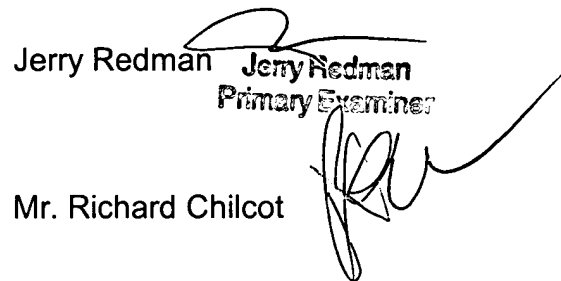 Jerry Redman
Jerry Redman
Primary Examiner
Mr. Richard Chilcot